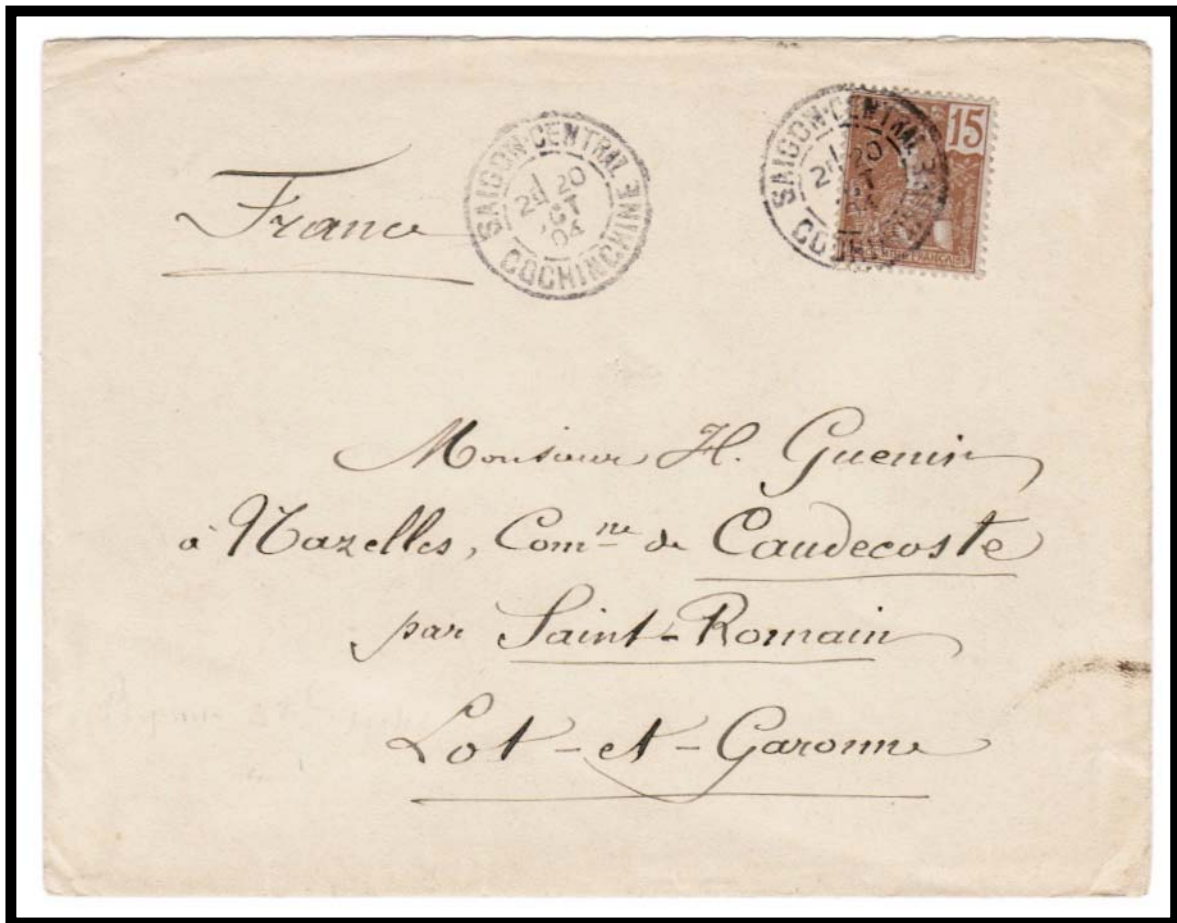 SAIGON-CENTRAL
20
OCT
04
COCHINCHINE
SAIGON-CENTRAL
20
15
France
Monsieur H. Guenin
à Nazelles, Comne de Caudecoste
par Saint-Romain
Lot-et-Garonne